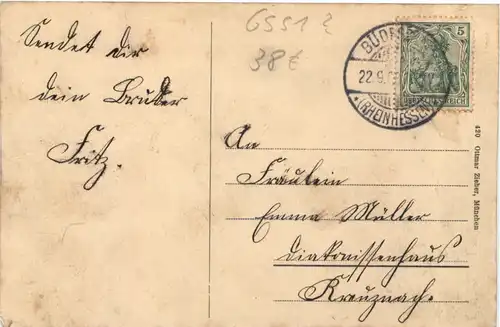 Sendet dir
dein Bruder
Fritz.
6551?
38€
5
22.9.
(RHEINHESSEN)
DEUTSCHES REICH
An
Fräulein
Emma Müller
Diakonissenhaus
Kreuznach.
420 Ottmar Zieher, München